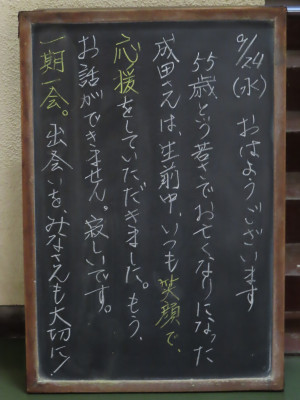 9/24(水) おはようございます
55歳という若さでお亡くなりになった
成田さんは、生前中、いつも笑顔で、
応援をしていただきました。もう、
お話ができません。寂しいです。
一期一会。出会いを、みなさんも大切に!